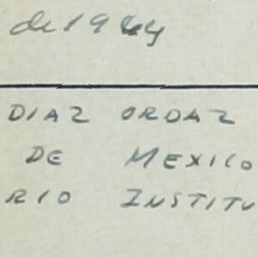 de 1964
DIAZ ORDAZ
DE MEXICO
RIO INSTITU